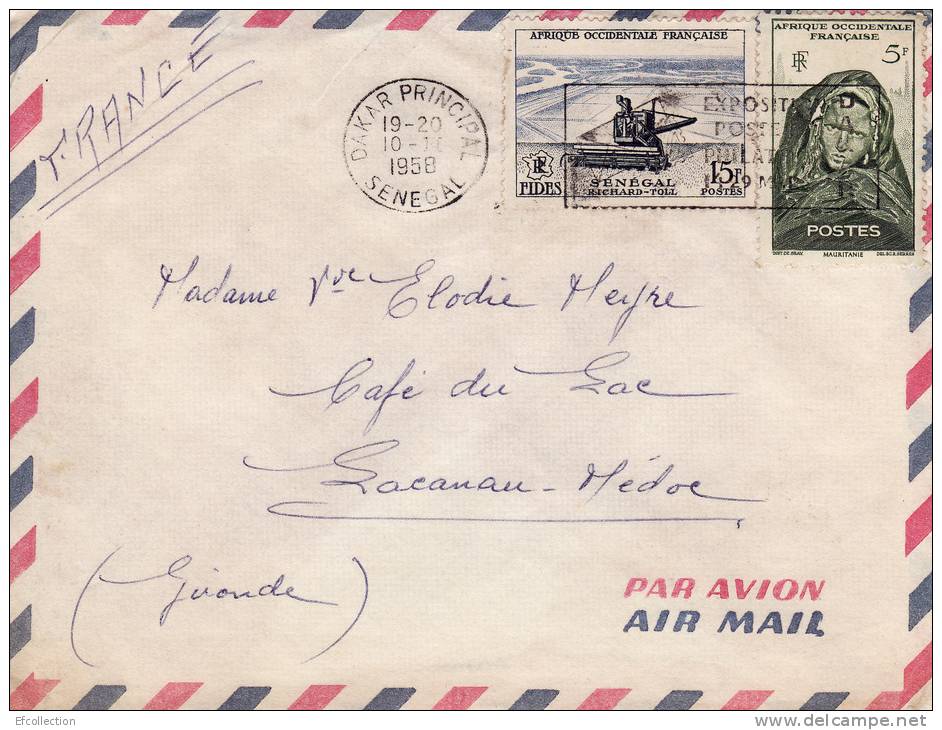 FRANCE
AFRIQUE OCCIDENTALE FRANÇAISE
RF
FIDES
SENÉGAL
RICHARD-TOLL
15F
POSTES
AFRIQUE OCCIDENTALE
FRANÇAISE
RF
5F
POSTES
MAURITANIE
DAKAR PRINCIPAL
19-20
10-
1958
SENEGAL
EXPOSITION
POSTE
PHILAT
Madame Vve Elodie Meyre
Café du Lac
Lacanau-Médoc
(Gironde)
PAR AVION
AIR MAIL
Efcollection
www.delcampe.net